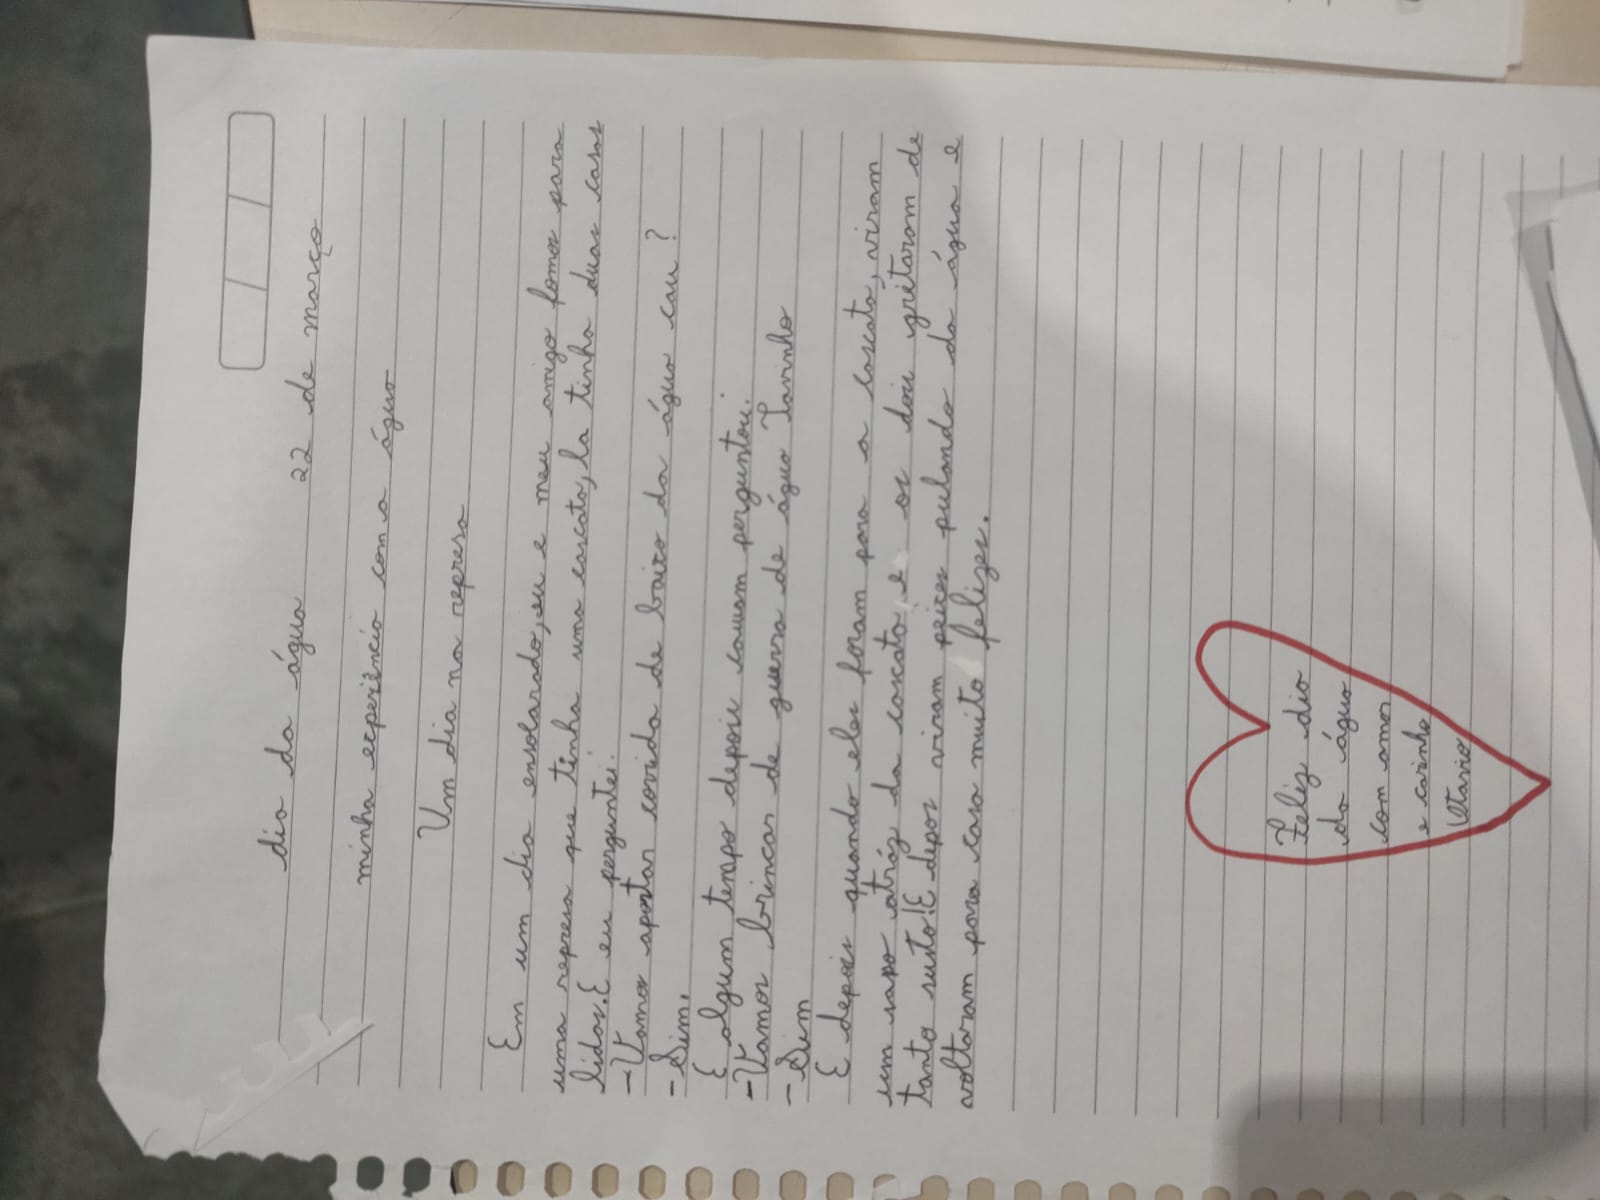 dia da água 22 de março
minha experiência com a água
Um dia na represa
Em um dia ensolarado, eu e meu amigo fomos para
uma represa que tinha uma cascata, la tinha duas casas
lidas. E eu perguntei:
-Vamos apostar corrida de baixo da água cau?
-Sim.
E algum tempo depois cauam perguntou:
-Vamos brincar de guerra de água Tavinho
-Sim
E depois quando eles foram para a cascata, viram
um sapo atráz da cascata, e os dois gritaram de
tanto susto! E depos viram peixes pulando da água e
voltaram para casa muito felizes.
Feliz dia
da água
com amor
e carinho
Otavio